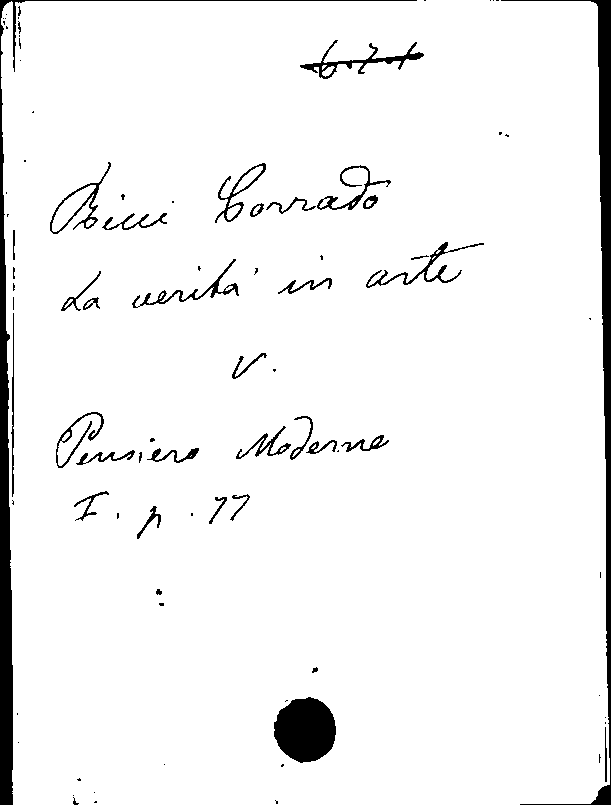 6.7.1
Ricci Corrado
La verità in arte
V.
Pensiero Moderno
I. p. 77